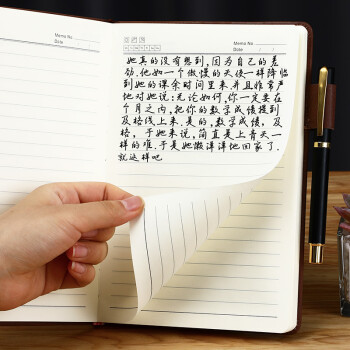 Memo No.
Date
Memo No.
Date / /
她真的没有想到,因为自己的差
劲.他如一个傲慢的天使一样降临
到她的课余时间里来并且非常严
地对她说:无论如何,你一定要在
个月之内,把你的数学成绩提到
及格线上来.是的,数学成绩,及
格,于她来说,简直是上青天一
样的难.于是她懒洋洋地回家了.
就这样吧